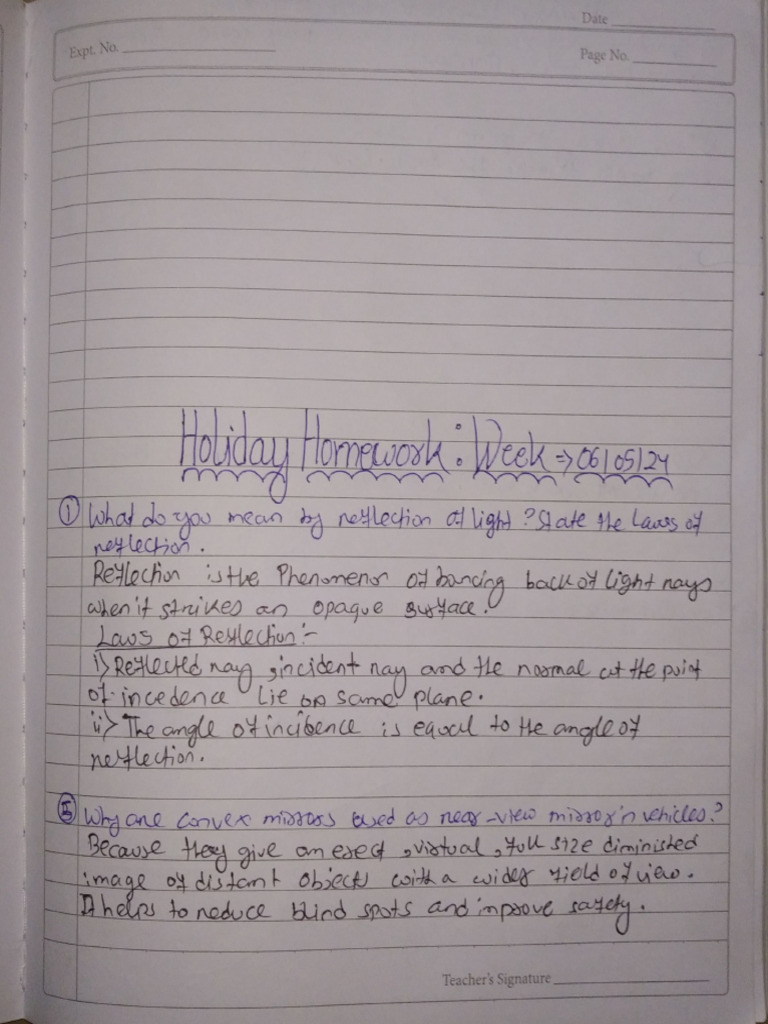 Date
Expt. No.
Page No.
Holiday Homework : Week => 06/05/24
① What do you mean by reflection of light ? State the laws of
reflection.
Reflection is the Phenomenon of bouncing back of light rays
when it strikes an opaque surface.
Laws of Reflection :-
i> Reflected ray , incident ray and the normal at the point
of incedence lie on same plane.
ii> The angle of incidence is equal to the angle of
reflection.
② Why are convex mirrors used as rear-view mirror in vehicles.?
Because they give an erect , virtual , full size diminished
image of distant objects with a wider field of view.
It helps to reduce blind spots and improve safety.
Teacher's Signature